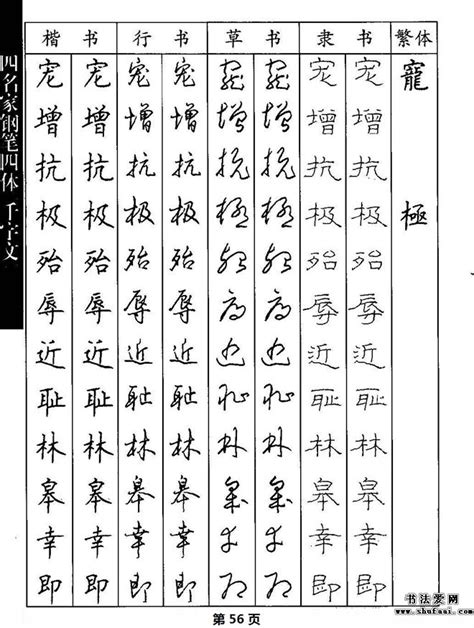 四名家钢笔四体 千字文
楷 书 行 书 草 书 隶 书 繁体
宠 宠 宠 宠 宠 宠 宠 宠 寵
增 增 增 增 增 增 增 增
抗 抗 抗 抗 抗 抗 抗 抗
极 极 极 极 極 極 极 极 極
殆 殆 殆 殆 殆 殆 殆 殆
辱 辱 辱 辱 辱 辱 辱 辱
近 近 近 近 近 近 近 近
耻 耻 耻 耻 耻 耻 耻 耻
林 林 林 林 林 林 林 林
皋 皋 皋 皋 皋 皋 皋 皋
幸 幸 幸 幸 幸 幸 幸 幸
即 即 即 即 即 即 即 即
第 56 页
书法爱网
www.shufaai.com